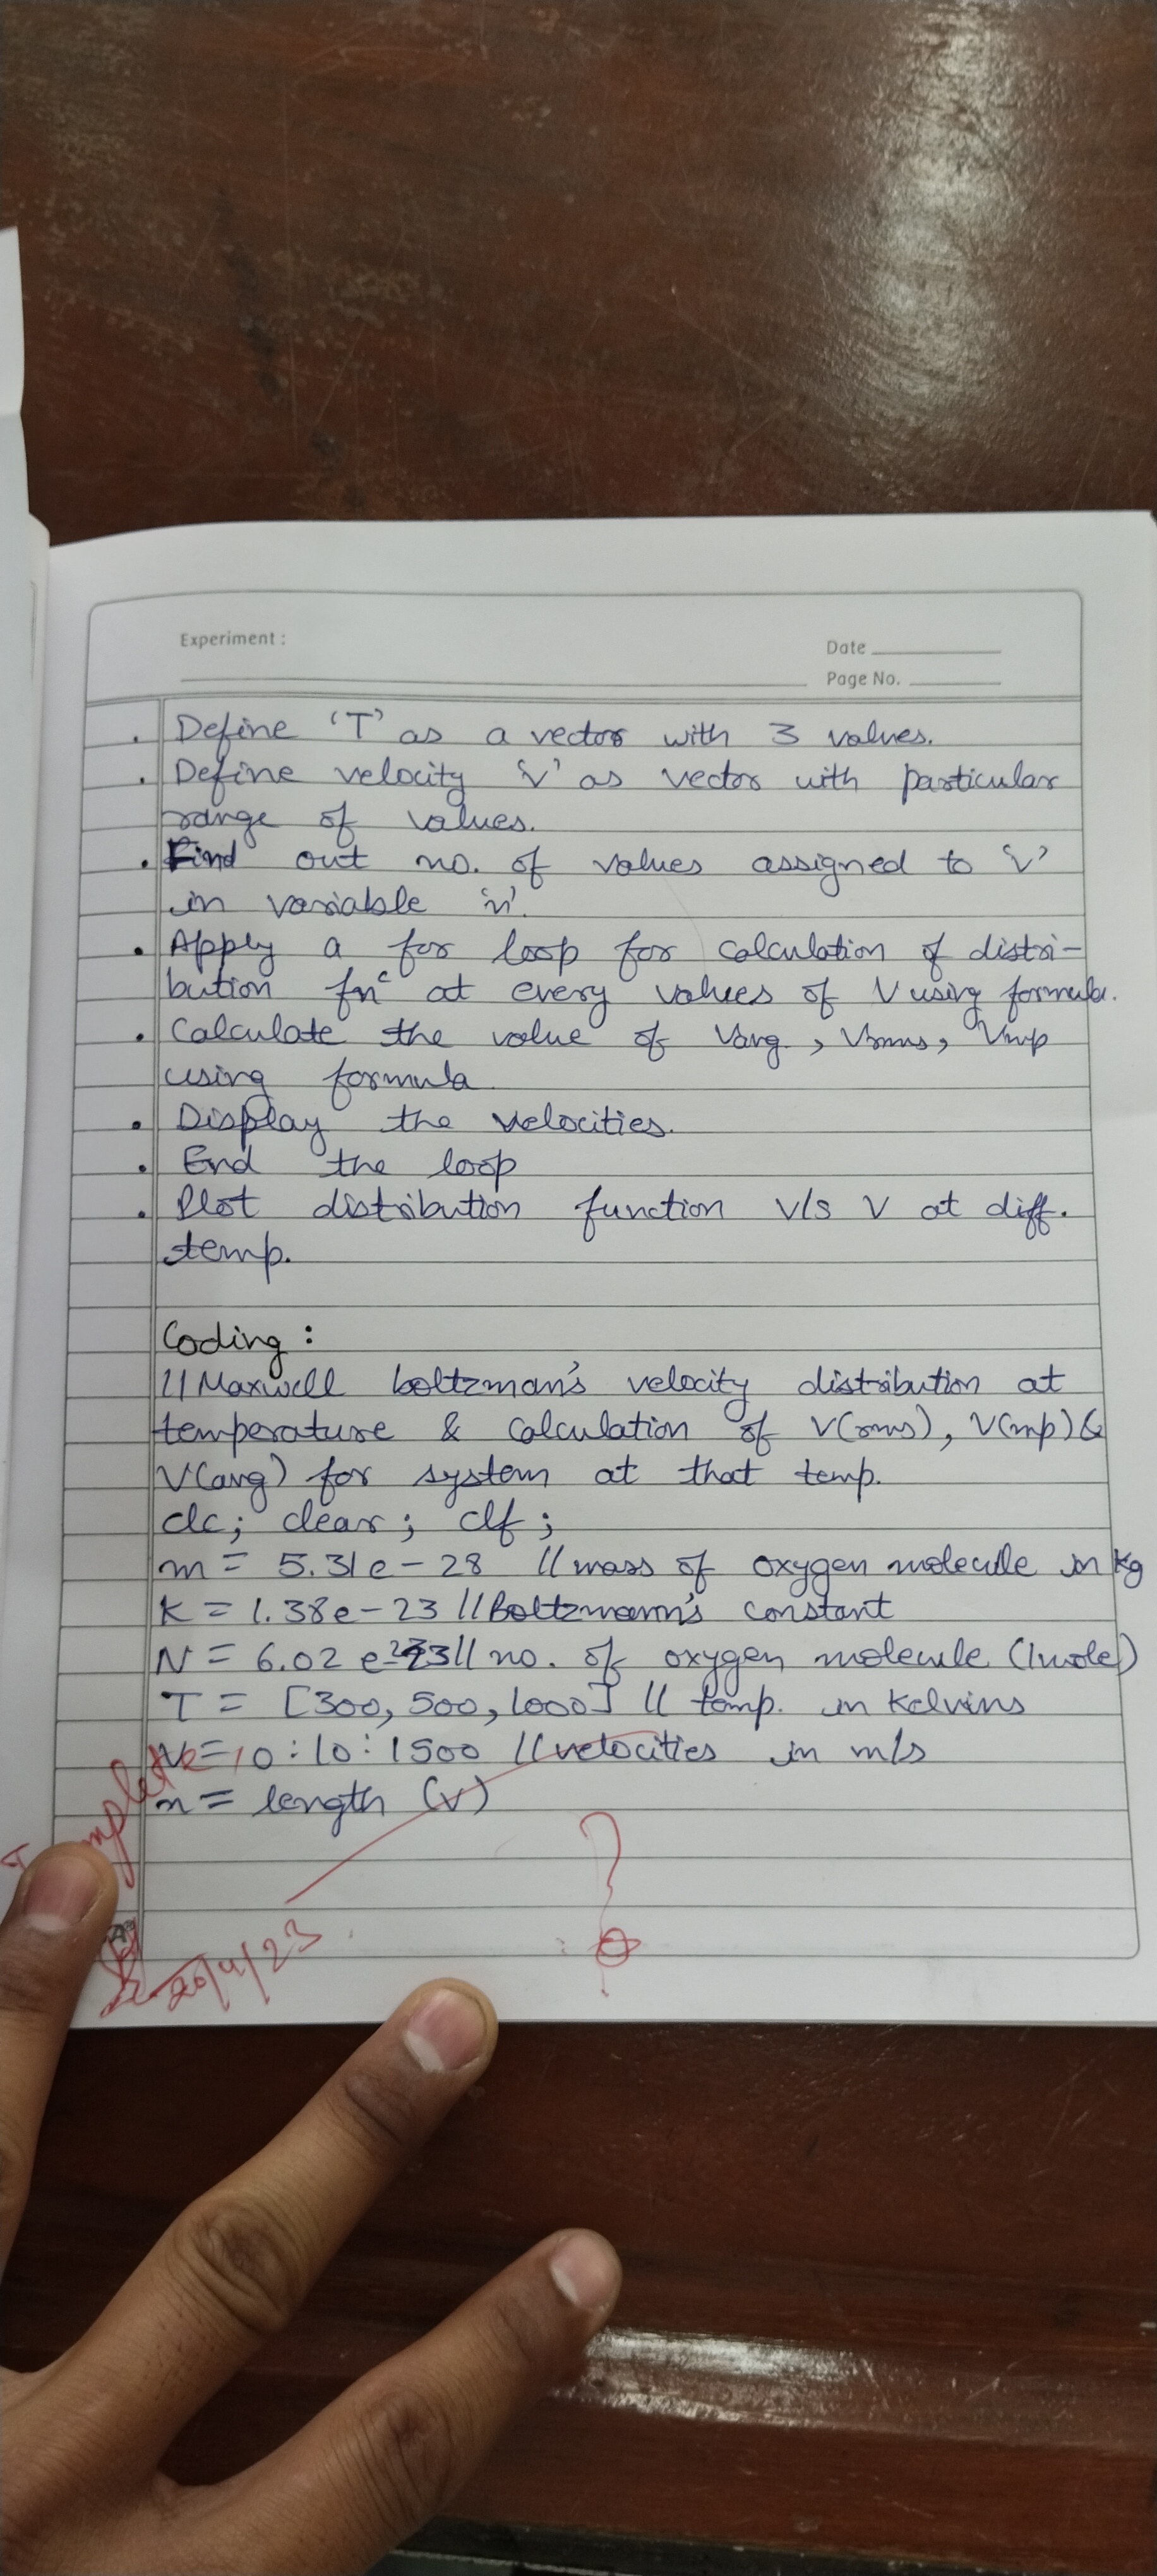 Experiment :
Date
Page No.
. Define 'T' as a vector with 3 values.
. Define velocity 'v' as vector with particular
range of values.
. Find out no. of values assigned to 'v'
in variable 'n'.
. Apply a for loop for calculation of distri-
bution fnᶜ at every values of V using formula.
. Calculate the value of Vavg , Vrms, Vmp
using formula
. Display the velocities.
. End the loop
. Plot distribution function v/s V at diff.
temp.
Coding :
// Maxwell boltzman's velocity distribution at
temperature & calculation of V(rms), V(mp) &
V(avg) for system at that temp.
clc; clear; clf;
m = 5.31e-28 // mass of oxygen molecule in kg
K = 1.38e-23 // Boltzmann's constant
N = 6.02 e23 // no. of oxygen molecule (1 mole)
T = [300, 500, 1000] // temp. in Kelvins
V = 10 : 10 : 1500 // velocities in m/s
n = length (v)
?
20/4/23